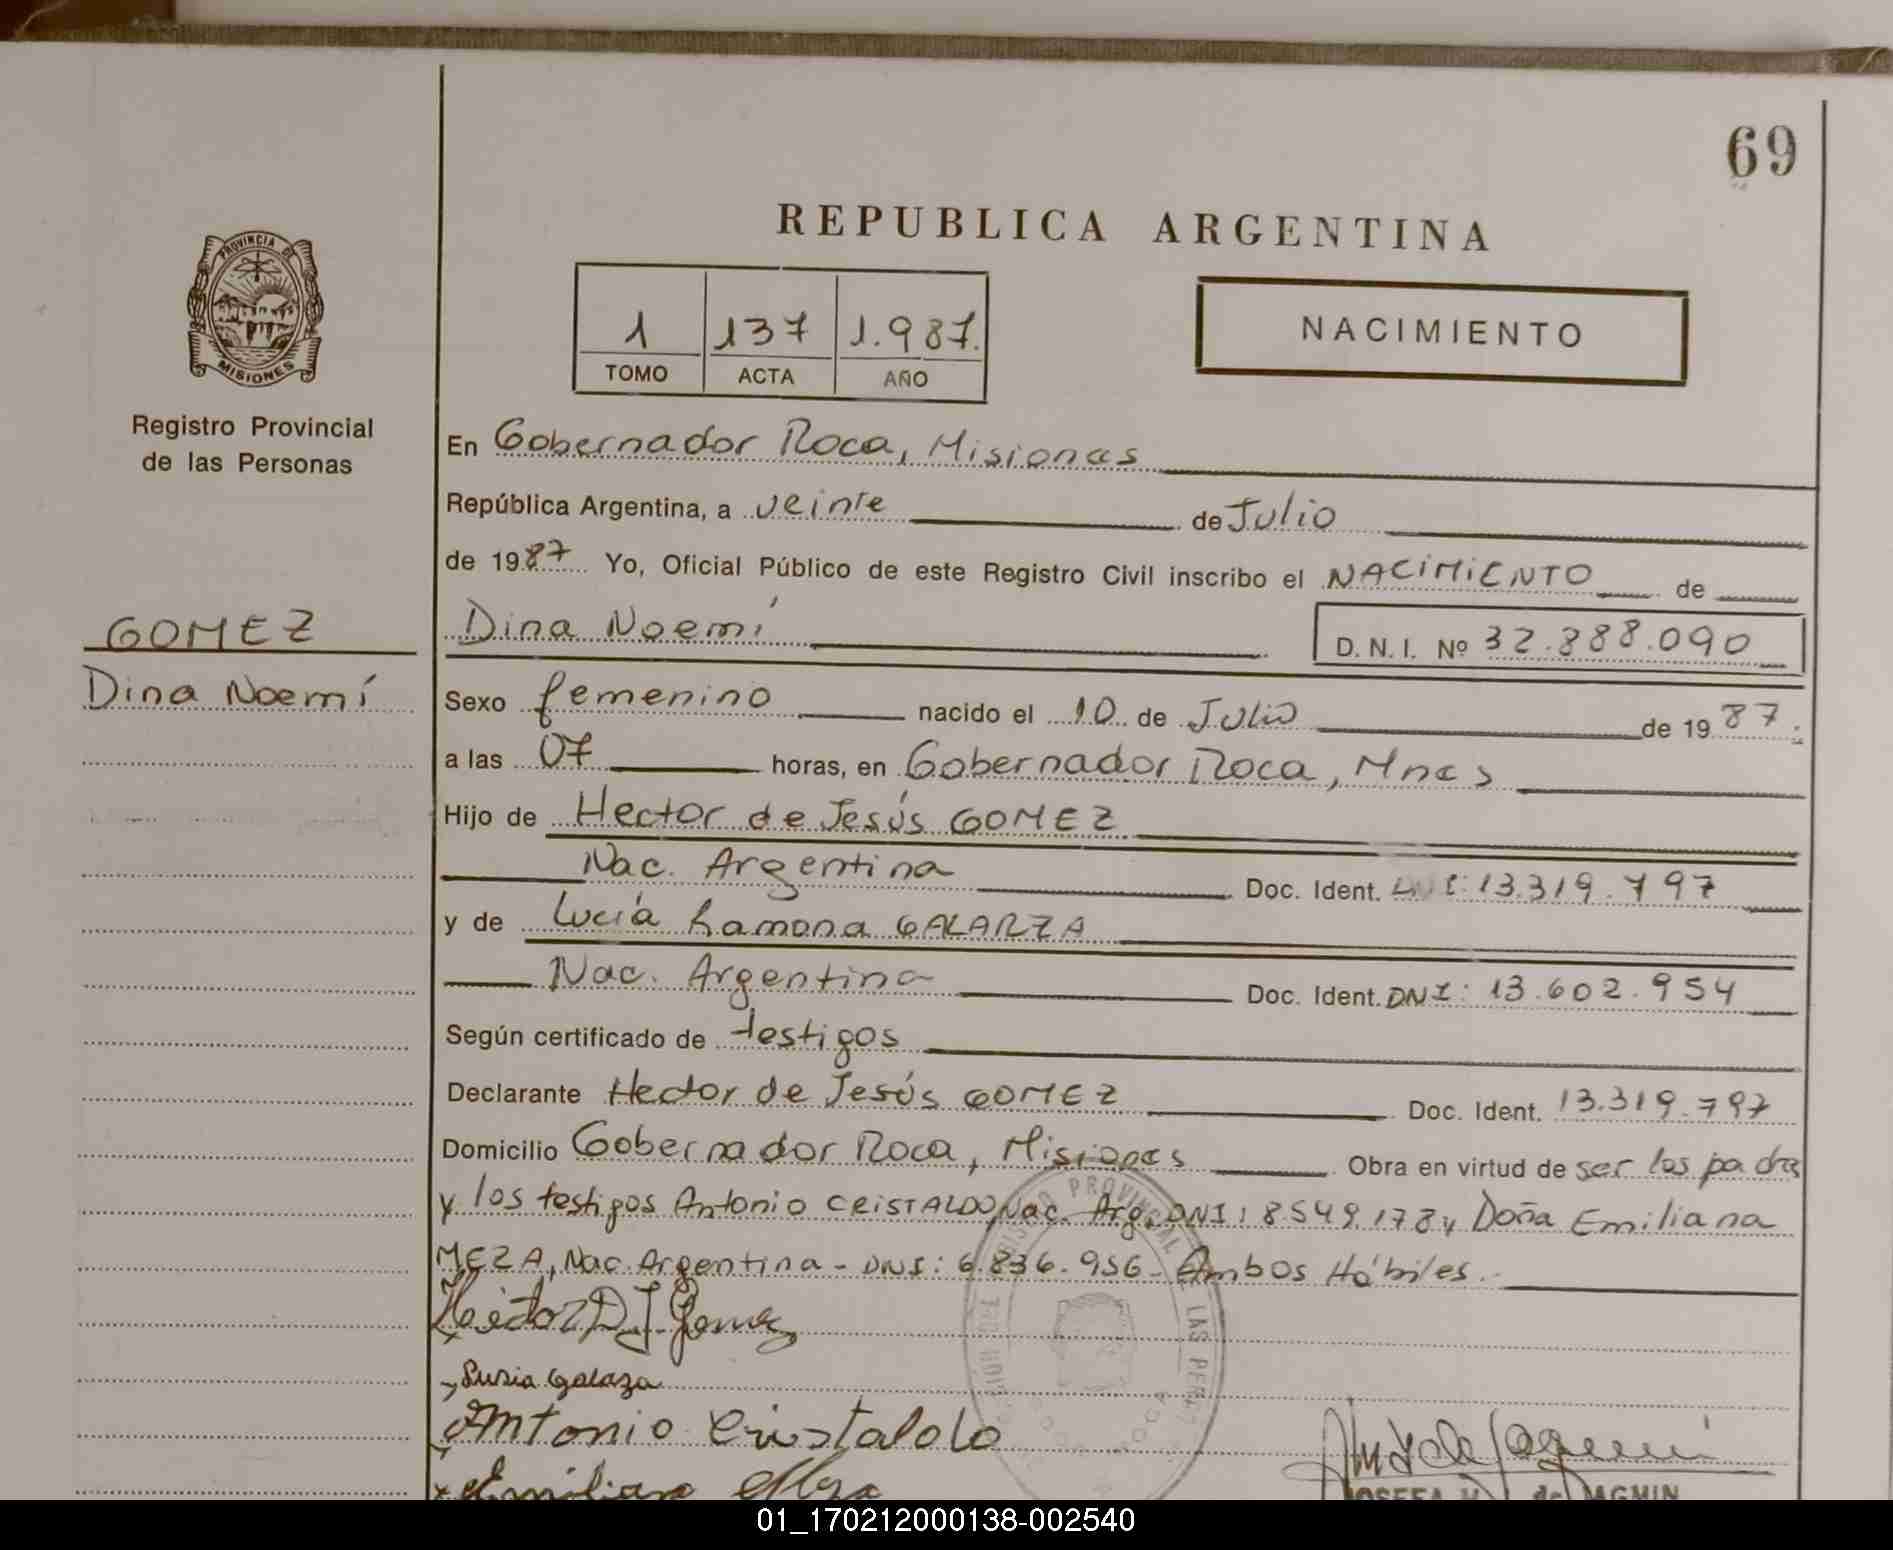 69
REPUBLICA ARGENTINA
PROVINCIA DE
MISIONES
Registro Provincial
de las Personas
1 137 1.987.
TOMO ACTA AÑO
NACIMIENTO
En Gobernador Roca, Misiones
República Argentina, a veinte de Julio
de 1987 Yo, Oficial Público de este Registro Civil inscribo el NACIMIENTO de
GOMEZ
Dina Noemí
Dina Noemí D.N.I. Nº 32.888.090
Sexo femenino nacido el 10 de Julio de 1987.
a las 07 horas, en Gobernador Roca, Mnes
Hijo de Hector de Jesús GOMEZ
Nac. Argentina Doc. Ident. DNI: 13.319.797
y de Lucía Ramona GALARZA
Nac. Argentina Doc. Ident. DNI: 13.602.954
Según certificado de testigos
Declarante Hector de Jesús GOMEZ Doc. Ident. 13.319.797
Domicilio Gobernador Roca, Misiones Obra en virtud de ser los padres
y los testigos Antonio CRISTALDO, Nac. Arg. DNI: 8549178 y Doña Emiliana
MEZA, Nac. Argentina - DNI: 6.836.956 - Ambos Hábiles.-
Hector D J Gomez
Antonio Cristaldo
Emiliana Meza
01_170212000138-002540